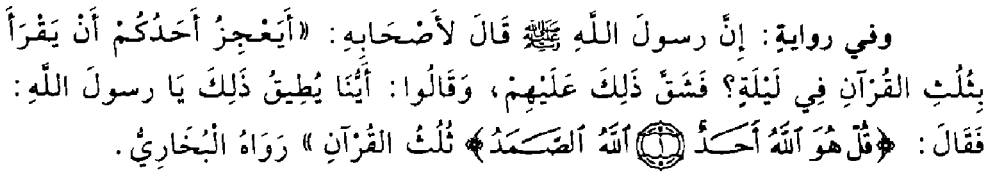 وفي روايةٍ: إِنَّ رسولَ اللَّهِ ﷺ قَالَ لأَصْحَابِهِ: «أَيَعْجِزُ أَحَدُكُمْ أَنْ يَقْرَأَ
بِثُلُثِ القُرْآنِ فِي لَيْلَةٍ؟ فَشَقَّ ذَلِكَ عَلَيْهِمْ، وَقَالُوا: أَيُّنَا يُطِيقُ ذَلِكَ يَا رسولَ اللَّهِ:
فَقَالَ: ﴿قُلْ هُوَ ٱللَّهُ أَحَدٌ ۝١ ٱللَّهُ ٱلصَّمَدُ﴾ ثُلُثُ القُرْآنِ» رَوَاهُ الْبُخَارِيُّ.